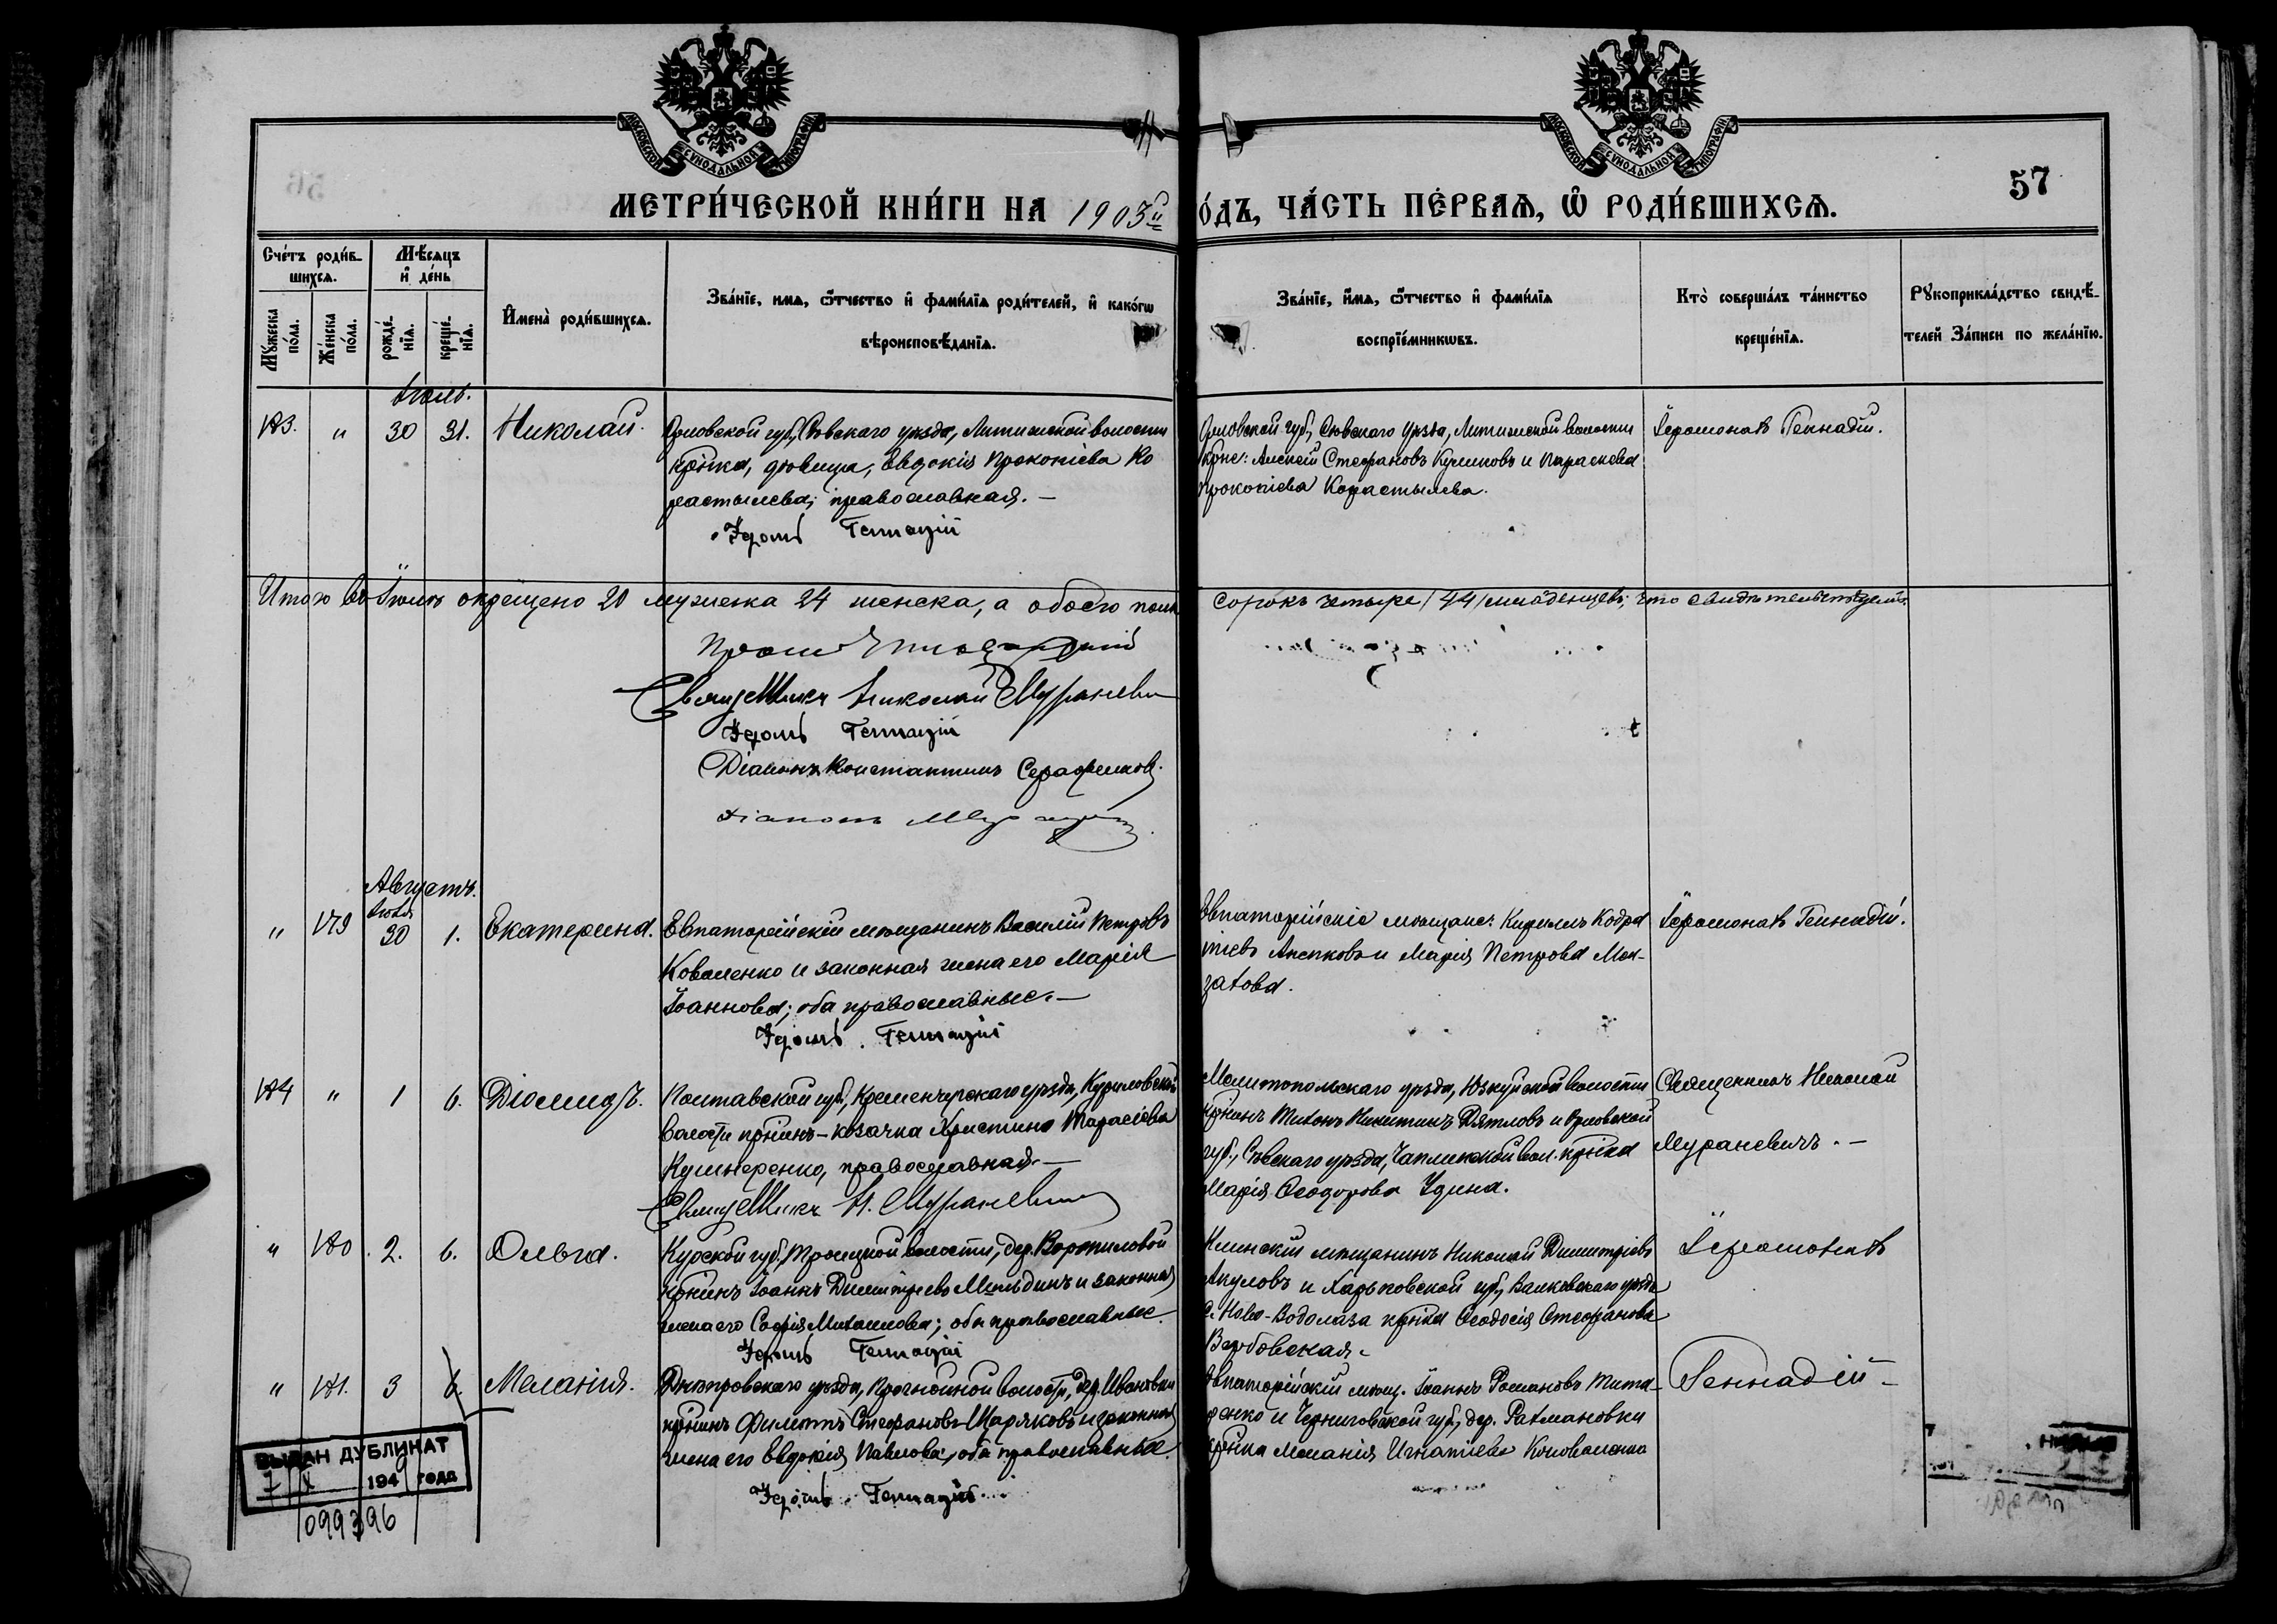 МОСКОВСКОЙ СѴНОДАЛЬНОЙ ТИПОГРАФІИ
МОСКОВСКОЙ СѴНОДАЛЬНОЙ ТИПОГРАФІИ
57
МЕТРИ́ЧЕСКОЙ КНИ́ГИ НА 1903й
О́ДЪ, ЧА́СТЬ ПЕ́РВАѦ, Ѡ РОДИ́ВШИХСѦ.
Сче́тъ роди́в-
шихсѧ.
Мѣ́сѧцъ
и҆ де́нь
Мꙋ́жеска
по́ла.
Же́нска
по́ла.
рожде́-
нїѧ.
креще́-
нїѧ.
И҆мена̀ роди́вшихсѧ.
Зва́нїе, имѧ, ѻ҆́тчество и҆ фами́лїѧ роди́телей, и҆ како́гѡ
вѣроисповѣ́данїѧ.
Зва́нїе, и҆́мѧ, ѻ҆́тчество и҆ фами́лїѧ
воспрїе́мникѡвъ.
Кто̀ соверша́лъ та́инство
креще́нїѧ.
Рꙋкоприкла́дство свидѣ́-
телей За́писи по жела́нїю.
Іюль.
183. " 30 31. Николай.
Орловской губ., Сѣвскаго уѣзда, Литижской волости
крнка, дѣвица, Евдокія Прокопіева Ко
растылева; православная. —
Іером Геннадій
Орловской губ., Сѣвскаго уѣзда, Литижской волости
крне: Алексій Стефановъ Куликовъ и Параскева
Прокопіева Карастылева.
Іеромонахъ Геннадій.
Итого во Іюлѣ окрещено 20 мужеска 24 женска, а обоего пола
сорокъ четыре /44/ младенцевъ; что свидѣтельствуемъ.
Священникъ Николай Мураневич
Іером Геннадій
Діаконъ Константинъ Серафимов
Діаконъ
Августъ.
" 179 Іюля 30 1. Екатерина.
Евпаторійскій мѣщанинъ Василій Петровъ
Коваленко и законная жена его Марія
Іоаннова; оба православные. —
Іером. Геннадій
Евпаторійскіе мѣщане: Кириллъ Кодра
тіевъ и Марія Петрова
Іеромонахъ Геннадій.
184 " 1 6. Діомидъ.
Полтавской губ., Кременчугскаго уѣзда,
волости крнинъ-козачка Христина Тарасіева
Кушнеренко, православная. —
Священникъ Н. Мураневич
Мелитопольскаго уѣзда, Юзкуйской волости
крнинъ Тихонъ Никитинъ Дятловъ и Орловской
губ., Сѣвскаго уѣзда, Чаплинской вол. крнка
Марія Ѳеодорова Удина.
Священникъ Николай
Мураневичъ. —
" 180. 2. 6. Ольга.
Курской губ., Троицкой волости, дер. Воропиловой
крнинъ Іоаннъ Димитріевъ и законная
жена его Софія Михаилова; оба православные.
Іером Геннадій
мѣщанинъ Николай Димитріевъ
Акуловъ и Харьковской губ., Валковскаго уѣзда
с. Ново-Водолага крнка Ѳеодосія Стефанова
Вербовская.
Іеромонахъ
" 181. 3 6. Меланія.
Днѣпровскаго уѣзда, Прогнойной волости, дер. Ивановки
крнинъ Филиппъ Стефановъ Щаряковъ и законная
жена его Евдокія Павлова; оба православные.
Іером. Геннадій.
Евпаторійскій мѣщ. Іоаннъ Романовъ Тита-
ренко и Черниговской губ., дер. Рахмановки
крнка Меланія Игнатіева Коноваленко
Геннадій —
ВЫДАН ДУБЛИКАТ
194 года
099396